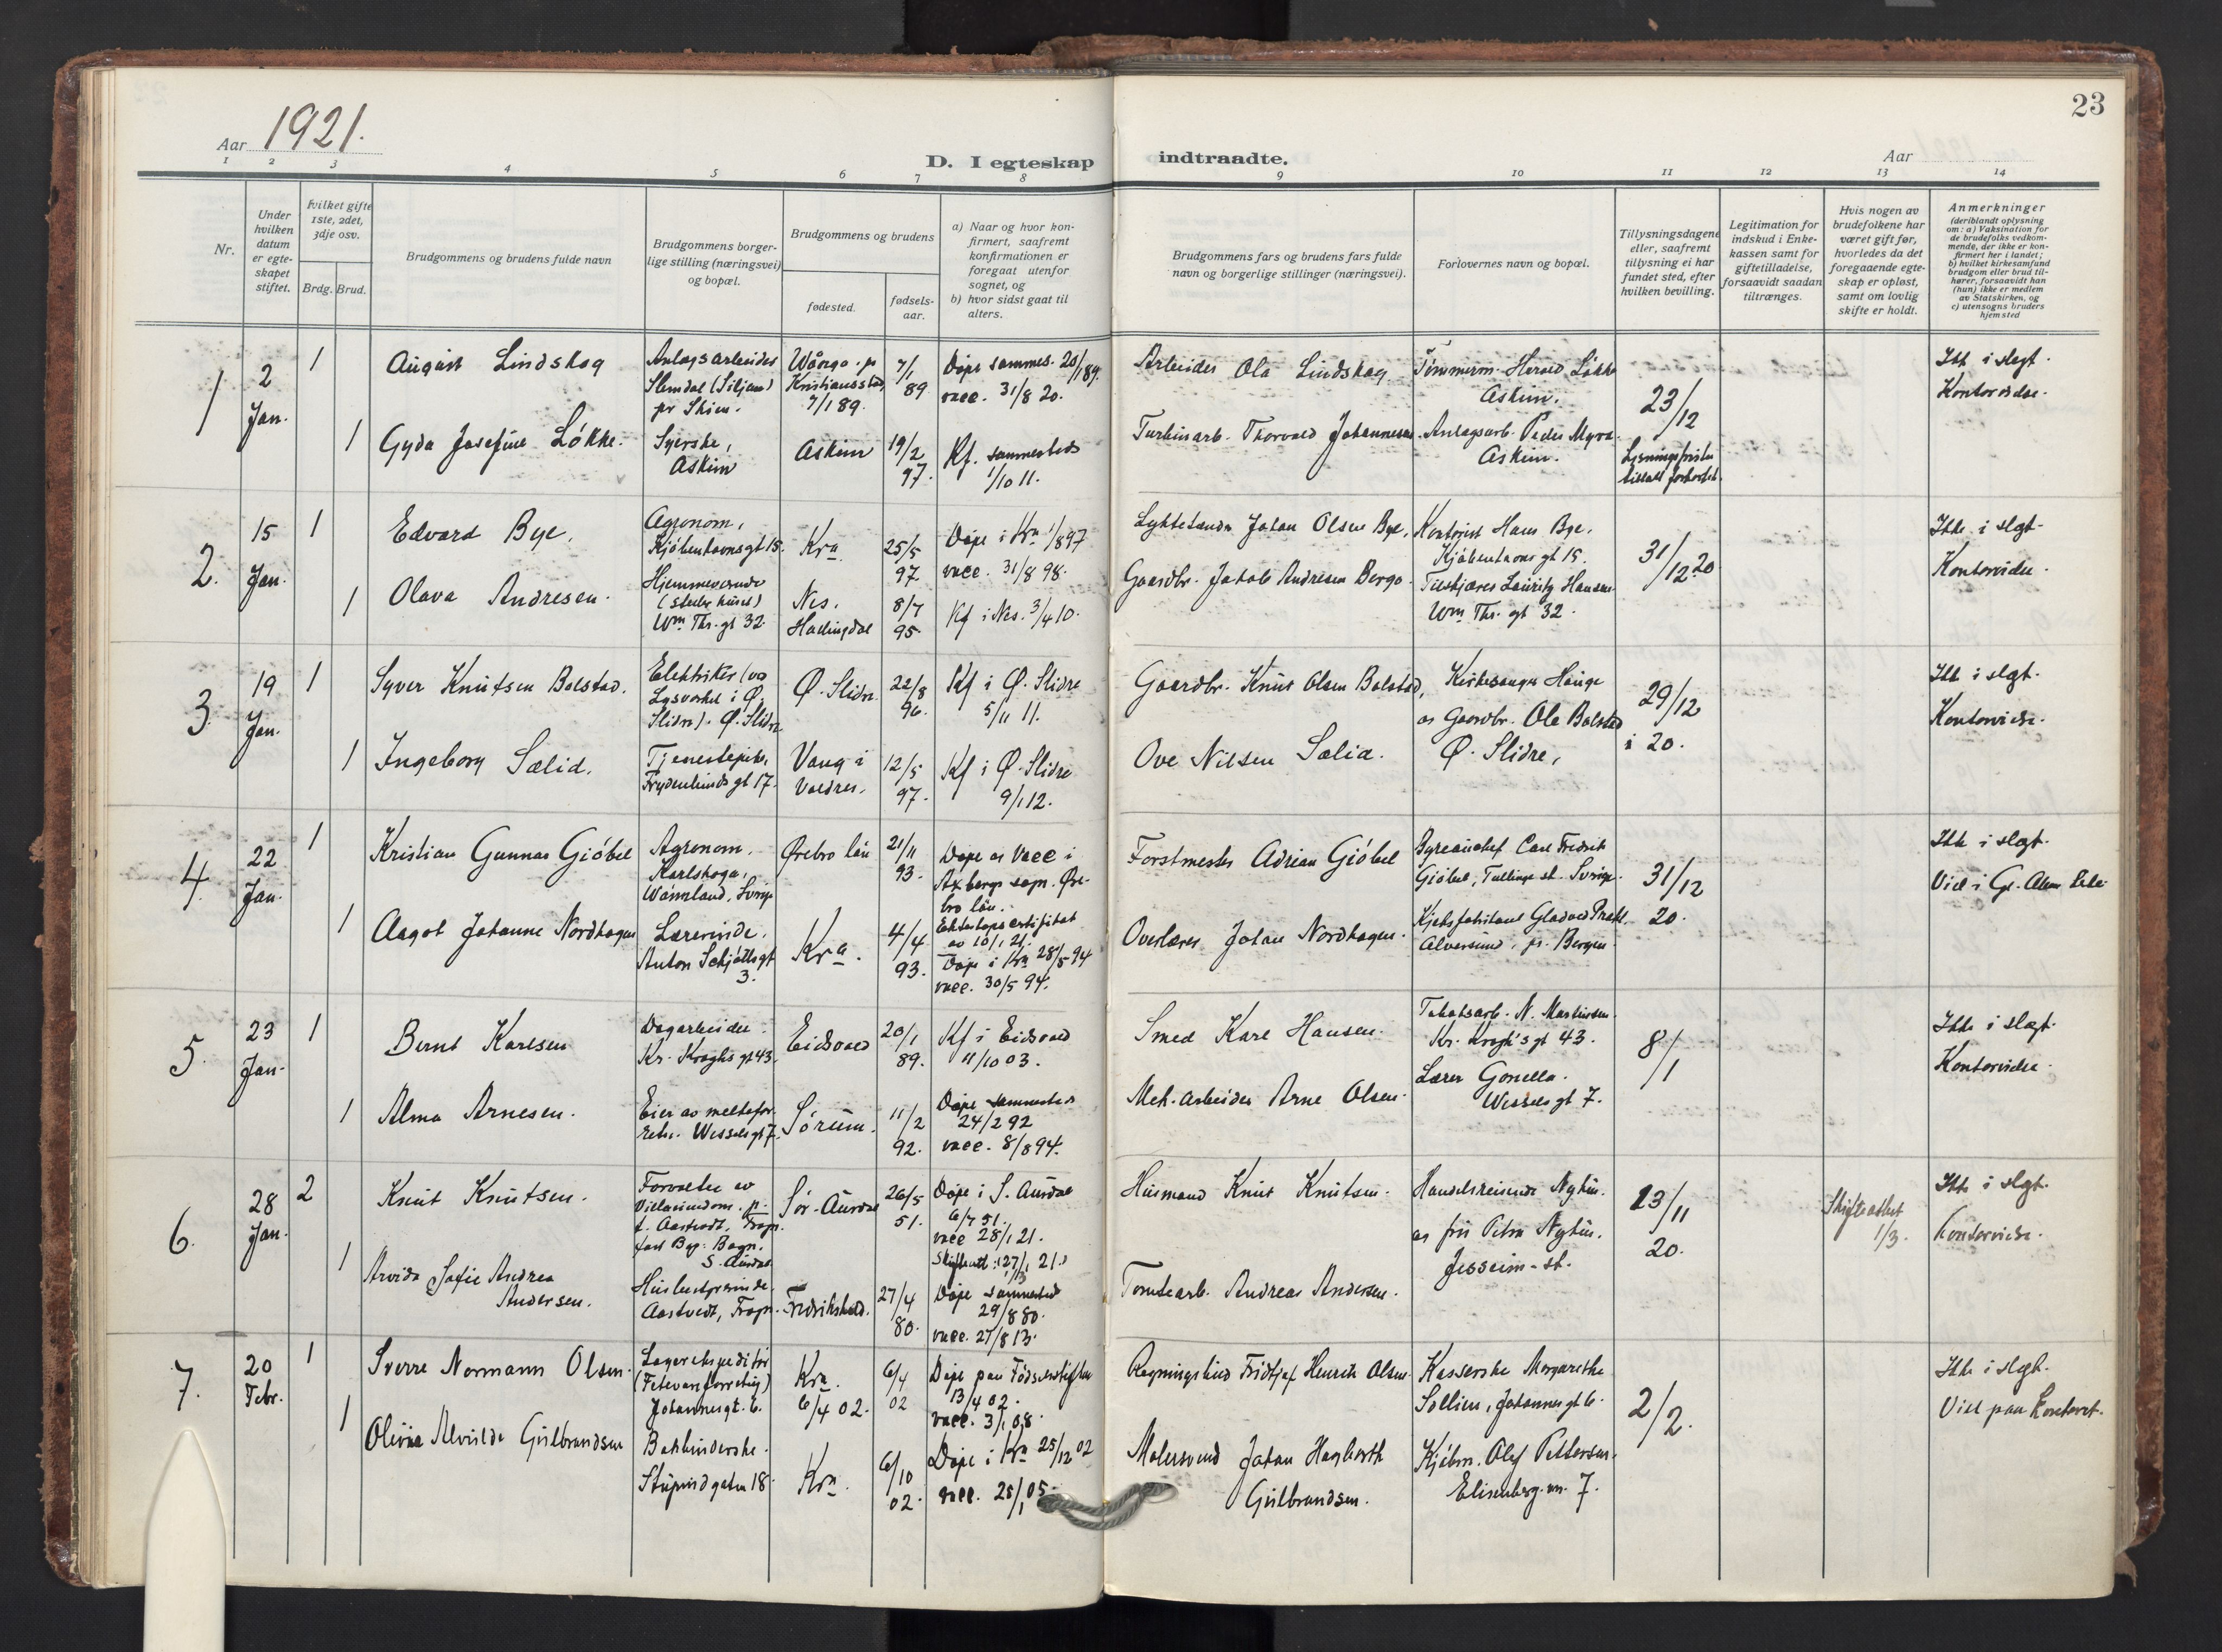 23
Aar 1921.
Aar
D. I egteskap indtraadte.
1 2 3 4 5 6 7 8 9 10 11 12 13 14
Nr.
Under
hvilken
datum
er egte-
skapet
stiftet.
hvilket gifte
1ste, 2det,
3dje osv.
Brdg. Brud.
Brudgommens og brudens fulde navn
Brudgommens borger-
lige stilling (næringsvei)
og bopæl.
Brudgommens og brudens
fødested.
fødsels-
aar.
a) Naar og hvor kon-
firmert, saafremt
konfirmationen er
foregaat utenfor
sognet, og
b) hvor sidst gaat til
alters.
Brudgommens fars og brudens fars fulde
navn og borgerlige stillinger (næringsvei).
Forlovernes navn og bopæl.
Tillysningsdagene
eller, saafremt
tillysning ei har
fundet sted, efter
hvilken bevilling.
Legitimation for
indskud i Enke-
kassen samt for
giftetilladelse,
forsaavidt saadan
tiltrænges.
Hvis nogen av
brudefolkene har
været gift før,
hvorledes da det
foregaaende egte-
skap er opløst,
samt om lovlig
skifte er holdt.
Anmerkninger
(deriblandt oplysning
om: a) Vaksination for
de brudefolks vedkom-
mende, der ikke er kon-
firmert her i landet;
b) hvilket kirkesamfund
brudgom eller brud til-
hører, forsaavidt han
(hun) ikke er medlem
av Statskirken, og
c) utensogns bruders
hjemsted
1
2
Jan.
1
August Lindskog
Anlægsarbeider
Slemdal (Siljan)
pr Skien.
Wånga pr
Kristiansstad
7/1 89.
7/1
89
Døpt sammes. 20/1 89.
vacc. 31/8 20.
Arbeider Ola Lindskog
Tømmerm. Herold Løkke
Askim.
23/12
Lysningsfristen
tillatt forkortet.
Ikke i slegt.
Kontorvidse.
1
Gyda Josefine Løkke.
Syerske,
Askim
Askim
19/2
97.
Kf. sammesteds
1/10 11.
Turbinarb. Thorvald Johannesen
Anlægsarb. Peder Myra
Askim.
2.
15
Jan.
1
Edvard Bye.
Agronom,
Kjøbenhavnsgt 15.
Kra
25/5
97
Døpt i Kra 1/8 97
vacc. 31/8 98.
Lyktetænder Johan Olsen Bye.
Kontorist Hans Bye,
Kjøbenhavnsgt 15.
31/12 20
Ikke i slegt.
Kontorvidse.
1
Olava Andresen.
Hjemmeværende
(stelte huset)
Wm Thr. gt 32.
Nes.
Hallingdal
8/7
95.
Kf i Nes. 3/4 10.
Gaardbr. Jakob Andresen Berge.
Tilskjærer Lauritz Hansen
Wm Thr. gt 32.
3.
19
Jan.
1
Syver Knutsen Bolstad.
Elektriker (ved
Lysverket i Ø.
Slidre). Ø. Slidre
Ø. Slidre
22/8
96.
Kf i Ø. Slidre
5/11 11.
Gaardbr. Knut Olsen Bolstad,
Kirkesanger Hauge
og Gaardbr. Ole Bolstad
Ø. Slidre,
29/12
20.
Ikke i slegt.
Kontorvidse.
1
Ingeborg Sælid.
Tjenestepike,
Frydenlundsgt 17.
Vang i
Valdres.
12/5
97.
Kf i Ø. Slidre
9/1 12.
Ove Nilsen Sælid.
4.
22
Jan.
1
Kristian Gunnar Giöbel
Agronom.
Karlskoga,
Wärmland, Sverige
Ørebro län
21/11
93.
Døpt og vacc i
Axbergs sogn. Øre-
bro län.
Ekteskapscertifikat
av 10/1 21.
Forstmester Adrian Giöbel
Byreauchef Carl Fredrik
Giöbel, Tullinge st. Sverige.
31/12
20.
Ikke i slegt.
Viet i Gl. Aker kirke
1
Aagot Johanne Nordhagen
Lærerinde.
Anton Schjøthsgt
3.
Kra.
4/4
93.
Døpt i Kra 28/5 94
vacc. 30/5 94.
Overlærer Johan Nordhagen.
Kjeksfabrikant Gladved Prahl
Alversund, pr. Bergen.
5.
23
Jan.
1
Bernt Karlsen
Dagarbeider.
Kr. Kroghs gt 43.
Eidsvold
20/1
89.
Kf i Eidsvold
11/10 03.
Smed Karl Hansen.
Tobaksarb. N. Martinsen.
Kr. Krogh's gt 43.
8/1
Ikke i slegt.
Kontorvidse.
1
Alma Arnesen.
Eier av melkefor-
retn. Wesselsgt 7.
Sørum.
11/2
92.
Døpt sammesteds
24/2 92
vacc. 8/8 94.
Mek. arbeider Arne Olsen.
Lærer Gonella.
Wessels gt 7.
6.
28
Jan.
2
Knut Knutsen.
Forvalter av
Villaeiendom.
Aastvedt, Frogn.
fast Bop: Bagn.
S. Aurdal
Sør-Aurdal
26/5
51.
Døpt i S. Aurdal
6/7 51.
vacc 28/1 21.
Skifteatt: 27/1 21.
Husmand Knut Knutsen.
Handelsreisende Nyhus.
og fru Petra Nyhus.
Jessheim-st.
13/11
20.
Skifteattest
1/3.
Ikke i slegt.
Kontorvidse.
1
Arvida Sofie Andrea
Andersen.
Husbestyrerinde.
Aastvedt, Frogn.
Fredrikshald.
27/4
80.
Døpt sammested
29/8 80.
vacc. 27/8 13.
Tomtearb. Andreas Andersen.
7.
20
Febr.
1
Sverre Normann Olsen.
Lagerekspeditør
(Fetevareforretning)
Johannesgt. 6.
Kra.
6/4 02.
6/4
02
Døpt paa Fødselsstiftelsen
13/4 02.
vacc. 3/1 08.
Regningsbud Fridtjof Henrik Olsen.
Kasserske Margarethe
Sollien, Johannesgt 6.
2/2.
Ikke i slegt.
Viet paa kontoret.
1
Olivia Alvilde Gulbrandsen
Bokbinderske.
Stupindgaten 18.
Kra.
6/10
02.
Døpt i Kra 25/12 02
vacc. 25/1 05.
Malersvend Johan Hagbarth
Gulbrandsen.
Kjøbm. Olef Pettersen.
Elisenberg vn. 7.